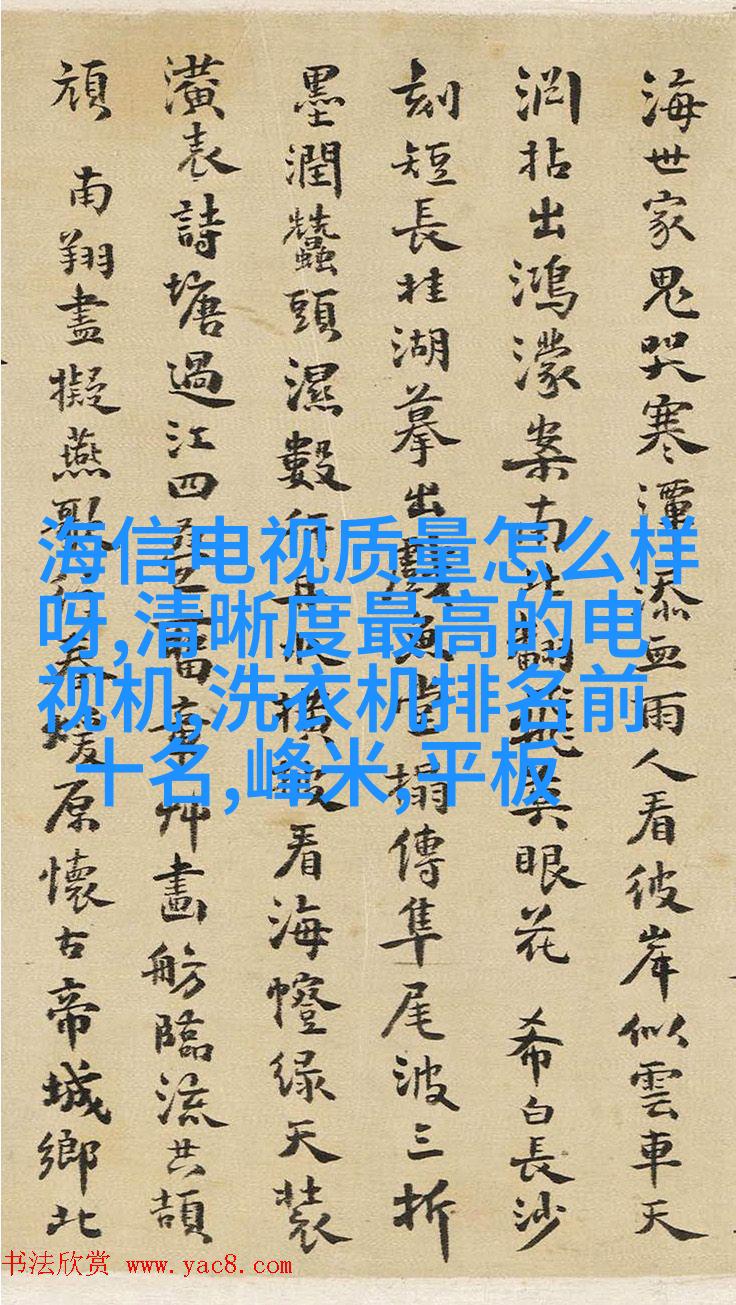 海世家鬼哭寒潭添血雨人看彼岸似雲車天
渕拈出鴻濛案南翻飛眼花 希白長沙
刻短長桂湖摹出戲魚堂搨傳隼尾波三折
墨潤蠶頭濕數行看海幢绿天裝
潢表詩塘過江四畫舫臨流共頡
頏 南翔盡擬燕原懷古帝城鄉北
海信电视质量怎么样
呀,清晰度最高的电
视机,洗衣机排名前
十名,峰米,平板
书法欣赏 www.yac8.com